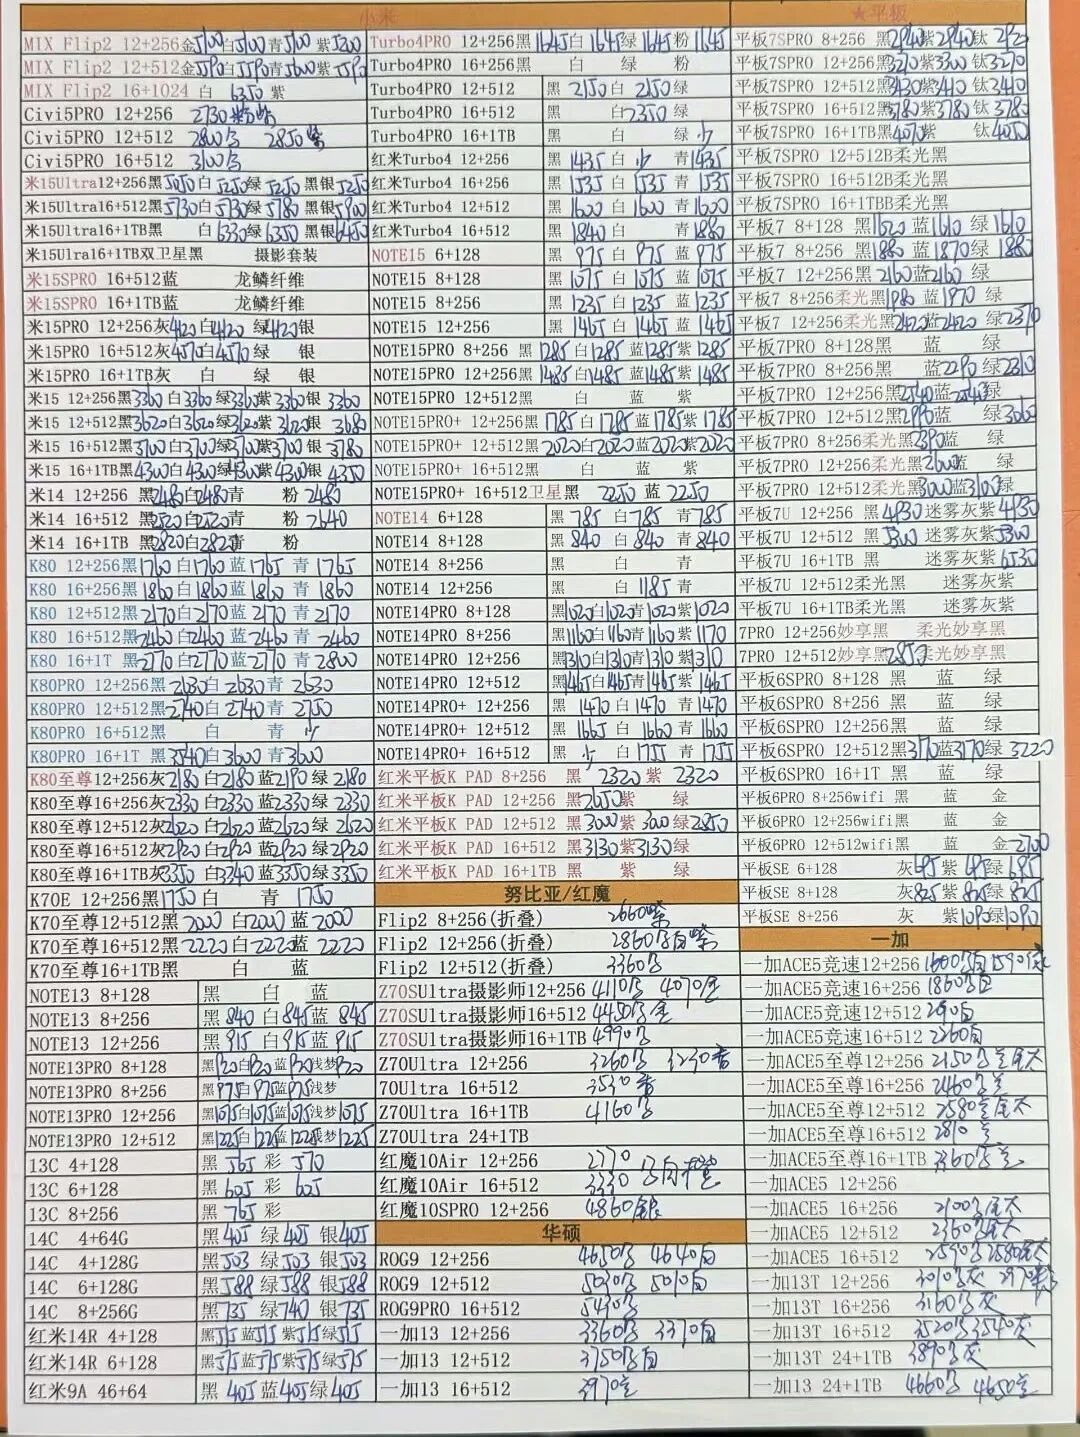 小米
MIX Flip2 12+256金5100白5100青5100紫5200
MIX Flip2 12+512金5590白5590青5600紫5590
MIX Flip2 16+1024 白 6350 紫
Civi5PRO 12+256 2730
Civi5PRO 12+512 2800 2850紫
Civi5PRO 16+512 3100
米15Ultra12+256黑5050白5250绿5250黑银5250
米15Ultra16+512黑5730白5730绿5780黑银5900
米15Ultra16+1TB黑 白6330绿6350黑银6450
米15Ulra16+1TB双卫星黑 摄影套装
米15SPRO 16+512蓝 龙鳞纤维
米15SPRO 16+1TB蓝 龙鳞纤维
米15PRO 12+256灰4120白4120绿4120银
米15PRO 16+512灰4570白4570绿 银
米15PRO 16+1TB灰 白 绿 银
米15 12+256黑3360白3360绿3360紫3360银3360
米15 12+512黑3620白3620绿3620紫3620银3680
米15 16+512黑3700白3700绿3700紫3700银3780
米15 16+1TB黑4300白4300绿4300紫4300银4350
米14 12+256 黑2480白2480青 粉2480
米14 16+512 黑2520白2520青 粉2640
米14 16+1TB 黑2820白2820青 粉
K80 12+256黑1760白1760蓝1765青1765
K80 16+256黑1860白1860蓝1860青1860
K80 12+512黑2170白2170蓝2170青2170
K80 16+512黑2460白2460蓝2460青2460
K80 16+1T 黑2770白2770蓝2770青2800
K80PRO 12+256黑2630白2630青2630
K80PRO 12+512黑2740白2740青2750
K80PRO 16+512黑 白 青 少
K80PRO 16+1T 黑3540白3600青3600
K80至尊12+256灰2180白2180蓝2190绿2180
K80至尊16+256灰2330白2330蓝2330绿2330
K80至尊12+512灰2620白2620蓝2620绿2620
K80至尊16+512灰2920白2920蓝2920绿2920
K80至尊16+1TB灰3350白3340蓝3350绿3350
K70E 12+256黑1750白 青1750
K70至尊12+512黑2000白2000蓝2000
K70至尊16+512黑2220白2220蓝2220
K70至尊16+1TB黑 白 蓝
NOTE13 8+128 黑 白 蓝
NOTE13 8+256 黑840白845蓝845
NOTE13 12+256 黑915白915蓝915
NOTE13PRO 8+128 黑920白920蓝920浅梦920
NOTE13PRO 8+256 黑975白975蓝975浅梦
NOTE13PRO 12+256 黑1075白1075蓝1075浅梦1075
NOTE13PRO 12+512 黑1225白1225蓝1225浅梦1225
13C 4+128 黑565彩570
13C 6+128 黑605彩605
13C 8+256 黑765彩
14C 4+64G 黑405绿405银405
14C 4+128G 黑503绿503银503
14C 6+128G 黑588绿588银588
14C 8+256G 黑735绿740银735
红米14R 4+128 黑515蓝515紫515绿515
红米14R 6+128 黑575蓝575紫575绿575
红米9A 46+64 黑405蓝405绿405
Turbo4PRO 12+256黑1645白1645绿1645粉1645
Turbo4PRO 16+256黑 白 绿 粉
Turbo4PRO 12+512 黑2150白2150绿
Turbo4PRO 16+512 黑 白2350绿
Turbo4PRO 16+1TB 黑 白 绿 少
红米Turbo4 12+256 黑1435白少 青1435
红米Turbo4 16+256 黑1535白1535青1535
红米Turbo4 12+512 黑1600白1600青1600
红米Turbo4 16+512 黑1840白1840青1880
NOTE15 6+128 黑975白975蓝975
NOTE15 8+128 黑1075白1075蓝1075
NOTE15 8+256 黑1235白1235蓝1235
NOTE15 12+256 黑1465白1465蓝1465
NOTE15PRO 8+256 黑1285白1285蓝1285紫1285
NOTE15PRO 12+256黑1485白1485蓝1485紫1485
NOTE15PRO 12+512黑 白 蓝 紫
NOTE15PRO+ 12+256黑1785白1785蓝1785紫1785
NOTE15PRO+ 12+512黑2020白2020蓝2020紫2020
NOTE15PRO+ 16+512黑 白 蓝 紫
NOTE15PRO+ 16+512卫星黑 2250蓝2250
NOTE14 6+128 黑785白785青785
NOTE14 8+128 黑840白840青840
NOTE14 8+256 黑 白 青
NOTE14 12+256 黑 白1185青
NOTE14PRO 8+128 黑1020白1020青1020紫1020
NOTE14PRO 8+256 黑1160白1160青1160紫1170
NOTE14PRO 12+256 黑1310白1310青1310紫1310
NOTE14PRO 12+512 黑1465白1465青1465紫1465
NOTE14PRO+ 12+256 黑1470白1470青1470
NOTE14PRO+ 12+512 黑1665白1660青1660
NOTE14PRO+ 16+512 黑少 白1755青1755
红米平板K PAD 8+256 黑2320紫2320
红米平板K PAD 12+256 黑2650紫 绿
红米平板K PAD 12+512 黑3000紫3000绿2850
红米平板K PAD 16+512 黑3130紫3130绿
红米平板K PAD 16+1TB 黑 紫 绿
努比亚/红魔
Flip2 8+256(折叠) 2660紫
Flip2 12+256(折叠) 2860白紫
Flip2 12+512(折叠) 3360
Z70SUltra摄影师12+256 4110 4070
Z70SUltra摄影师16+512 4450
Z70SUltra摄影师16+1TB 4990
Z70Ultra 12+256 3260 3230
70Ultra 16+512 3530
Z70Ultra 16+1TB 4160
Z70Ultra 24+1TB
红魔10Air 12+256 2770
红魔10Air 16+512 3330
红魔10SPRO 12+256 4860银
华硕
ROG9 12+256 4650 4640白
ROG9 12+512 5030 5010白
ROG9PRO 16+512 5430
一加13 12+256 3360 3370白
一加13 12+512 3750白
一加13 16+512 3970
★平板
平板7SPRO 8+256 黑2940紫2940钛2920
平板7SPRO 12+256黑3270紫3300钛3270
平板7SPRO 12+512黑3430紫3410钛3410
平板7SPRO 16+512黑3780紫3780钛3780
平板7SPRO 16+1TB黑4070紫 钛4050
平板7SPRO 12+512B柔光黑
平板7SPRO 16+512B柔光黑
平板7SPRO 16+1TBB柔光黑
平板7 8+128 黑1620蓝1610绿1610
平板7 8+256 黑1880蓝1870绿1880
平板7 12+256黑2160蓝2160绿
平板7 8+256柔光黑1980蓝1970绿
平板7 12+256柔光黑2420蓝2420绿2370
平板7PRO 8+128黑 蓝 绿
平板7PRO 8+256黑 蓝2290绿2310
平板7PRO 12+256黑2540蓝2540绿
平板7PRO 12+512黑2990蓝 绿3060
平板7PRO 8+256柔光黑2390蓝 绿
平板7PRO 12+256柔光黑2600蓝 绿
平板7PRO 12+512柔光黑3000蓝3100绿
平板7U 12+256 黑4930迷雾灰紫4930
平板7U 12+512 黑5300迷雾灰紫5300
平板7U 16+1TB 黑 迷雾灰紫6530
平板7U 12+512柔光黑 迷雾灰紫
平板7U 16+1TB柔光黑 迷雾灰紫
7PRO 12+256妙享黑 柔光妙享黑
7PRO 12+512妙享黑2850柔光妙享黑
平板6SPRO 8+128 黑 蓝 绿
平板6SPRO 8+256 黑 蓝 绿
平板6SPRO 12+256黑 蓝 绿
平板6SPRO 12+512黑3170蓝3170绿3220
平板6SPRO 16+1T 黑 蓝 绿
平板6PRO 8+256wifi 黑 蓝 金
平板6PRO 12+256wifi黑 蓝 金
平板6PRO 12+512wifi黑 蓝 金2700
平板SE 6+128 灰695紫695绿685
平板SE 8+128 灰825紫825绿825
平板SE 8+256 灰 紫1090绿1090
一加
一加ACE5竞速12+256 1600白1590
一加ACE5竞速16+256 1860白
一加ACE5竞速12+512 2090白
一加ACE5竞速16+512 2260白
一加ACE5至尊12+256 2150
一加ACE5至尊16+256 2460
一加ACE5至尊12+512 2580
一加ACE5至尊16+512 2810
一加ACE5至尊16+1TB 3360
一加ACE5 12+256
一加ACE5 16+256 2100
一加ACE5 12+512 2360
一加ACE5 16+512 2590 2580
一加13T 12+256 3010灰 2970
一加13T 16+256 3160灰
一加13T 16+512 3520 3540灰
一加13T 24+1TB 3890灰
一加13 24+1TB 4660 4650